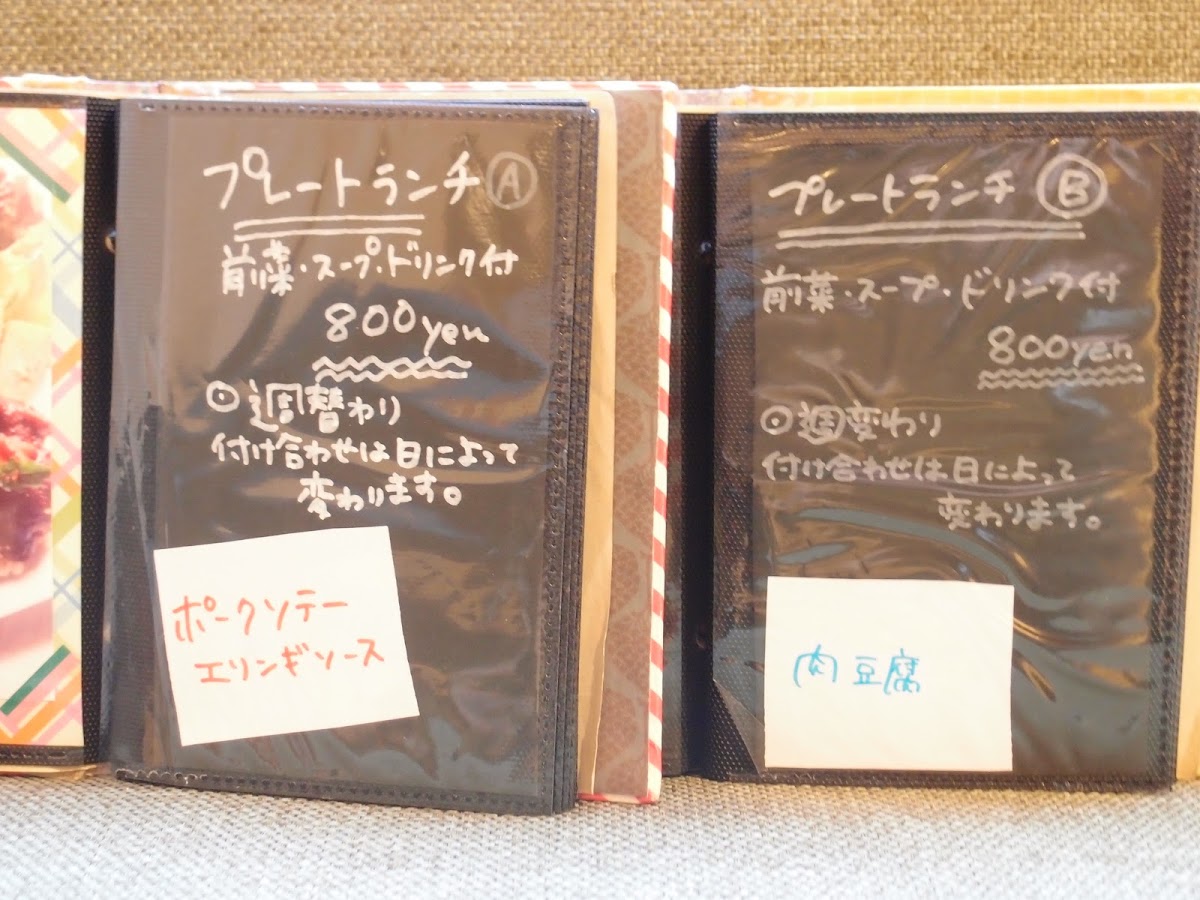 プレートランチ Ⓐ
前菜・スープ・ドリンク付
800yen
⊙週替わり
付け合わせは日によって
変わります。
ポークソテー
エリンギソース
プレートランチ Ⓑ
前菜・スープ・ドリンク付
800yen
⊙週変わり
付け合わせは日によって
変わります。
肉豆腐